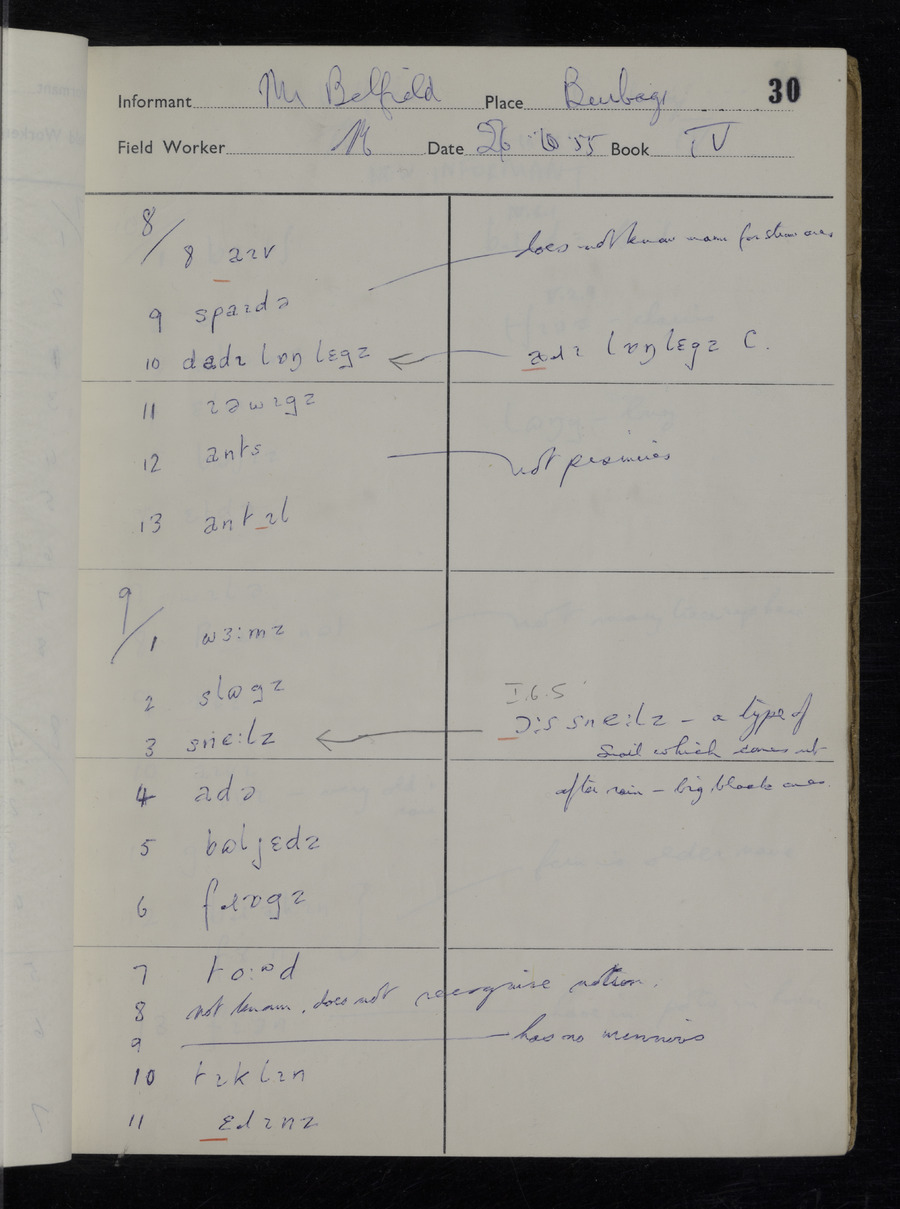 30
Informant Mr Belfield Place Burbage
Field Worker Date 26 · 10 · 55 Book IV
8/8 aɪv does not know name for straw ones
9 spaɪdə
10 dadɪ lɒŋ lɛgz adɪ lɒŋ lɛgz C.
11 ɪəwɪgz
12 ants not pismires
13 antɪl
9/1 wɜ:mz
I.6.5
2 slɷgz
3 sne:lz ɔ:s sne:lz – a type of
snail which comes out
4 adə after rain – big black ones.
5 bɷljɛdz
6 fɹɒgz
7 to:ɷd
8 not known, does not recognise notion.
9 has no minnows
10 tɪklɪn
11 ɛɹɪnz